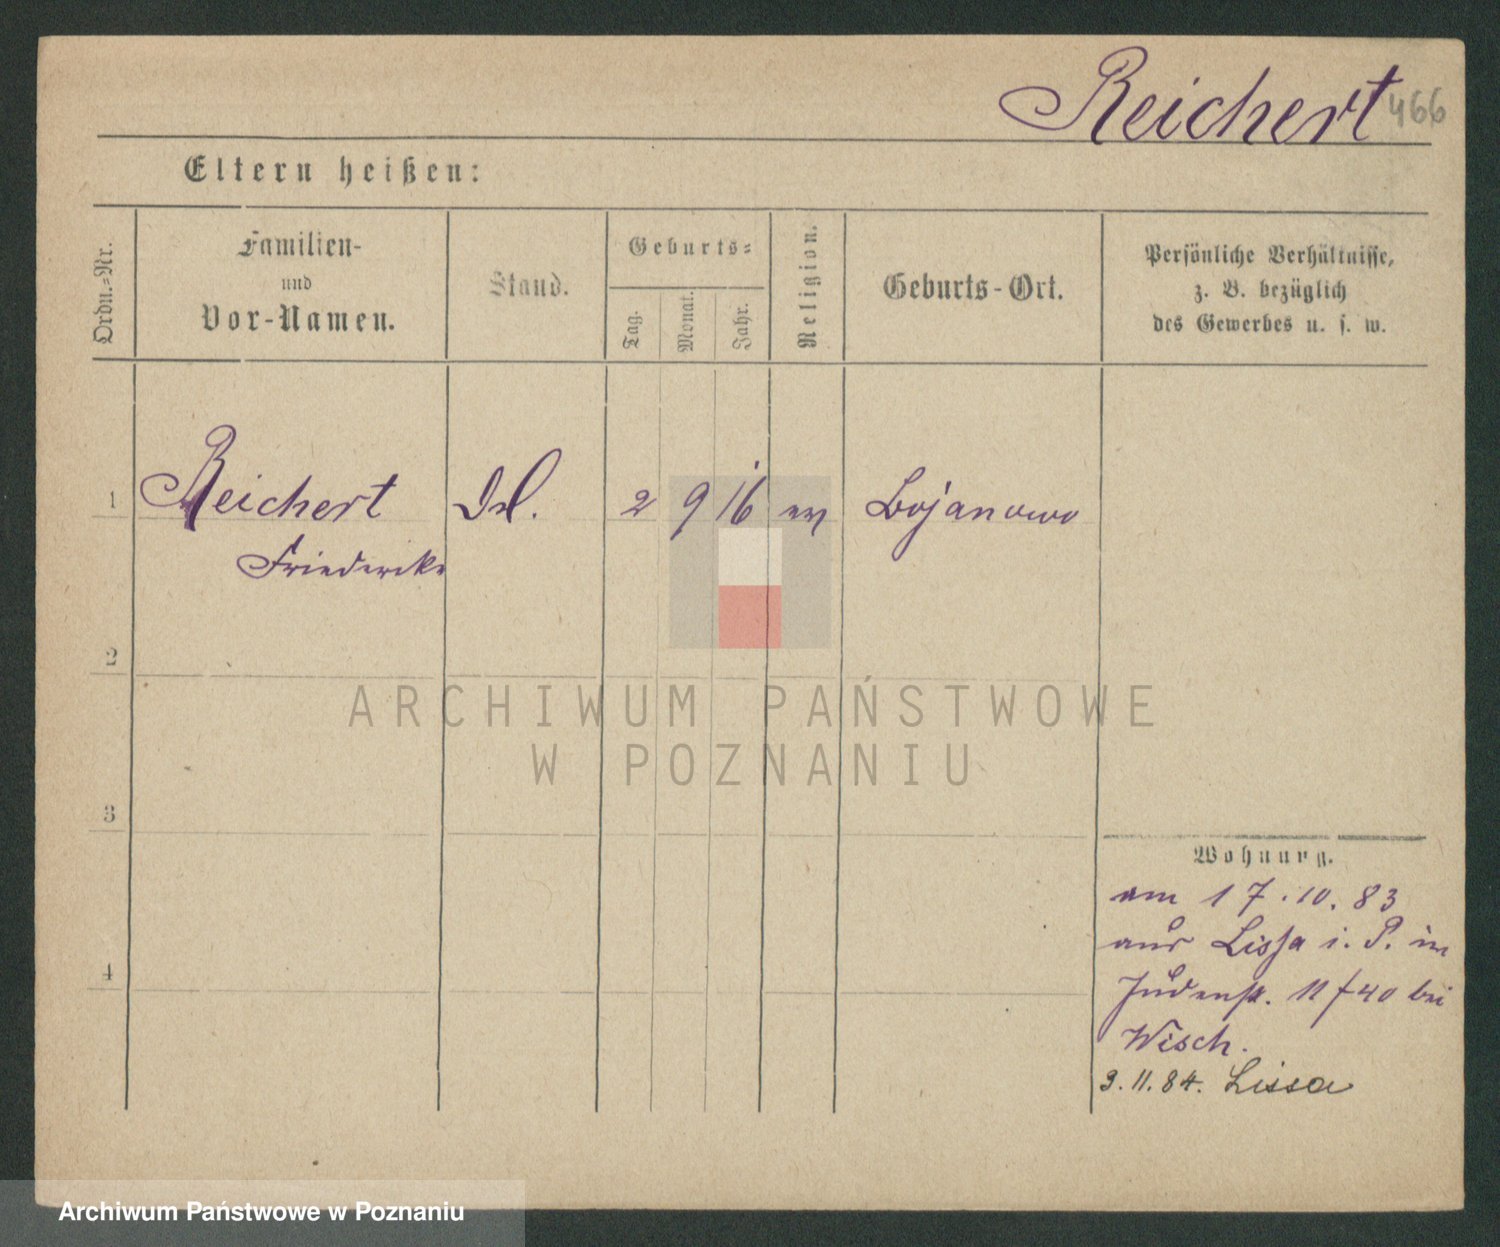 Reichert
466
Eltern heißen:
Ordn.=Nr.
Familien-
und
Vor-Namen.
Stand.
Geburts=
Tag.
Monat.
Jahr.
Religion.
Geburts-Ort.
Persönliche Verhältnisse,
z. B. bezüglich
des Gewerbes u. s. w.
1
Reichert
2 9 16
Bojanowo
Friedericke
2
ARCHIWUM PAŃSTWOWE
W POZNANIU
3
Wohnung.
am 17.10.83
aus Lissa i. P. in
Judenstr. 11/40 bei
4
Wisch.
3.11.84. Lissa
Archiwum Państwowe w Poznaniu